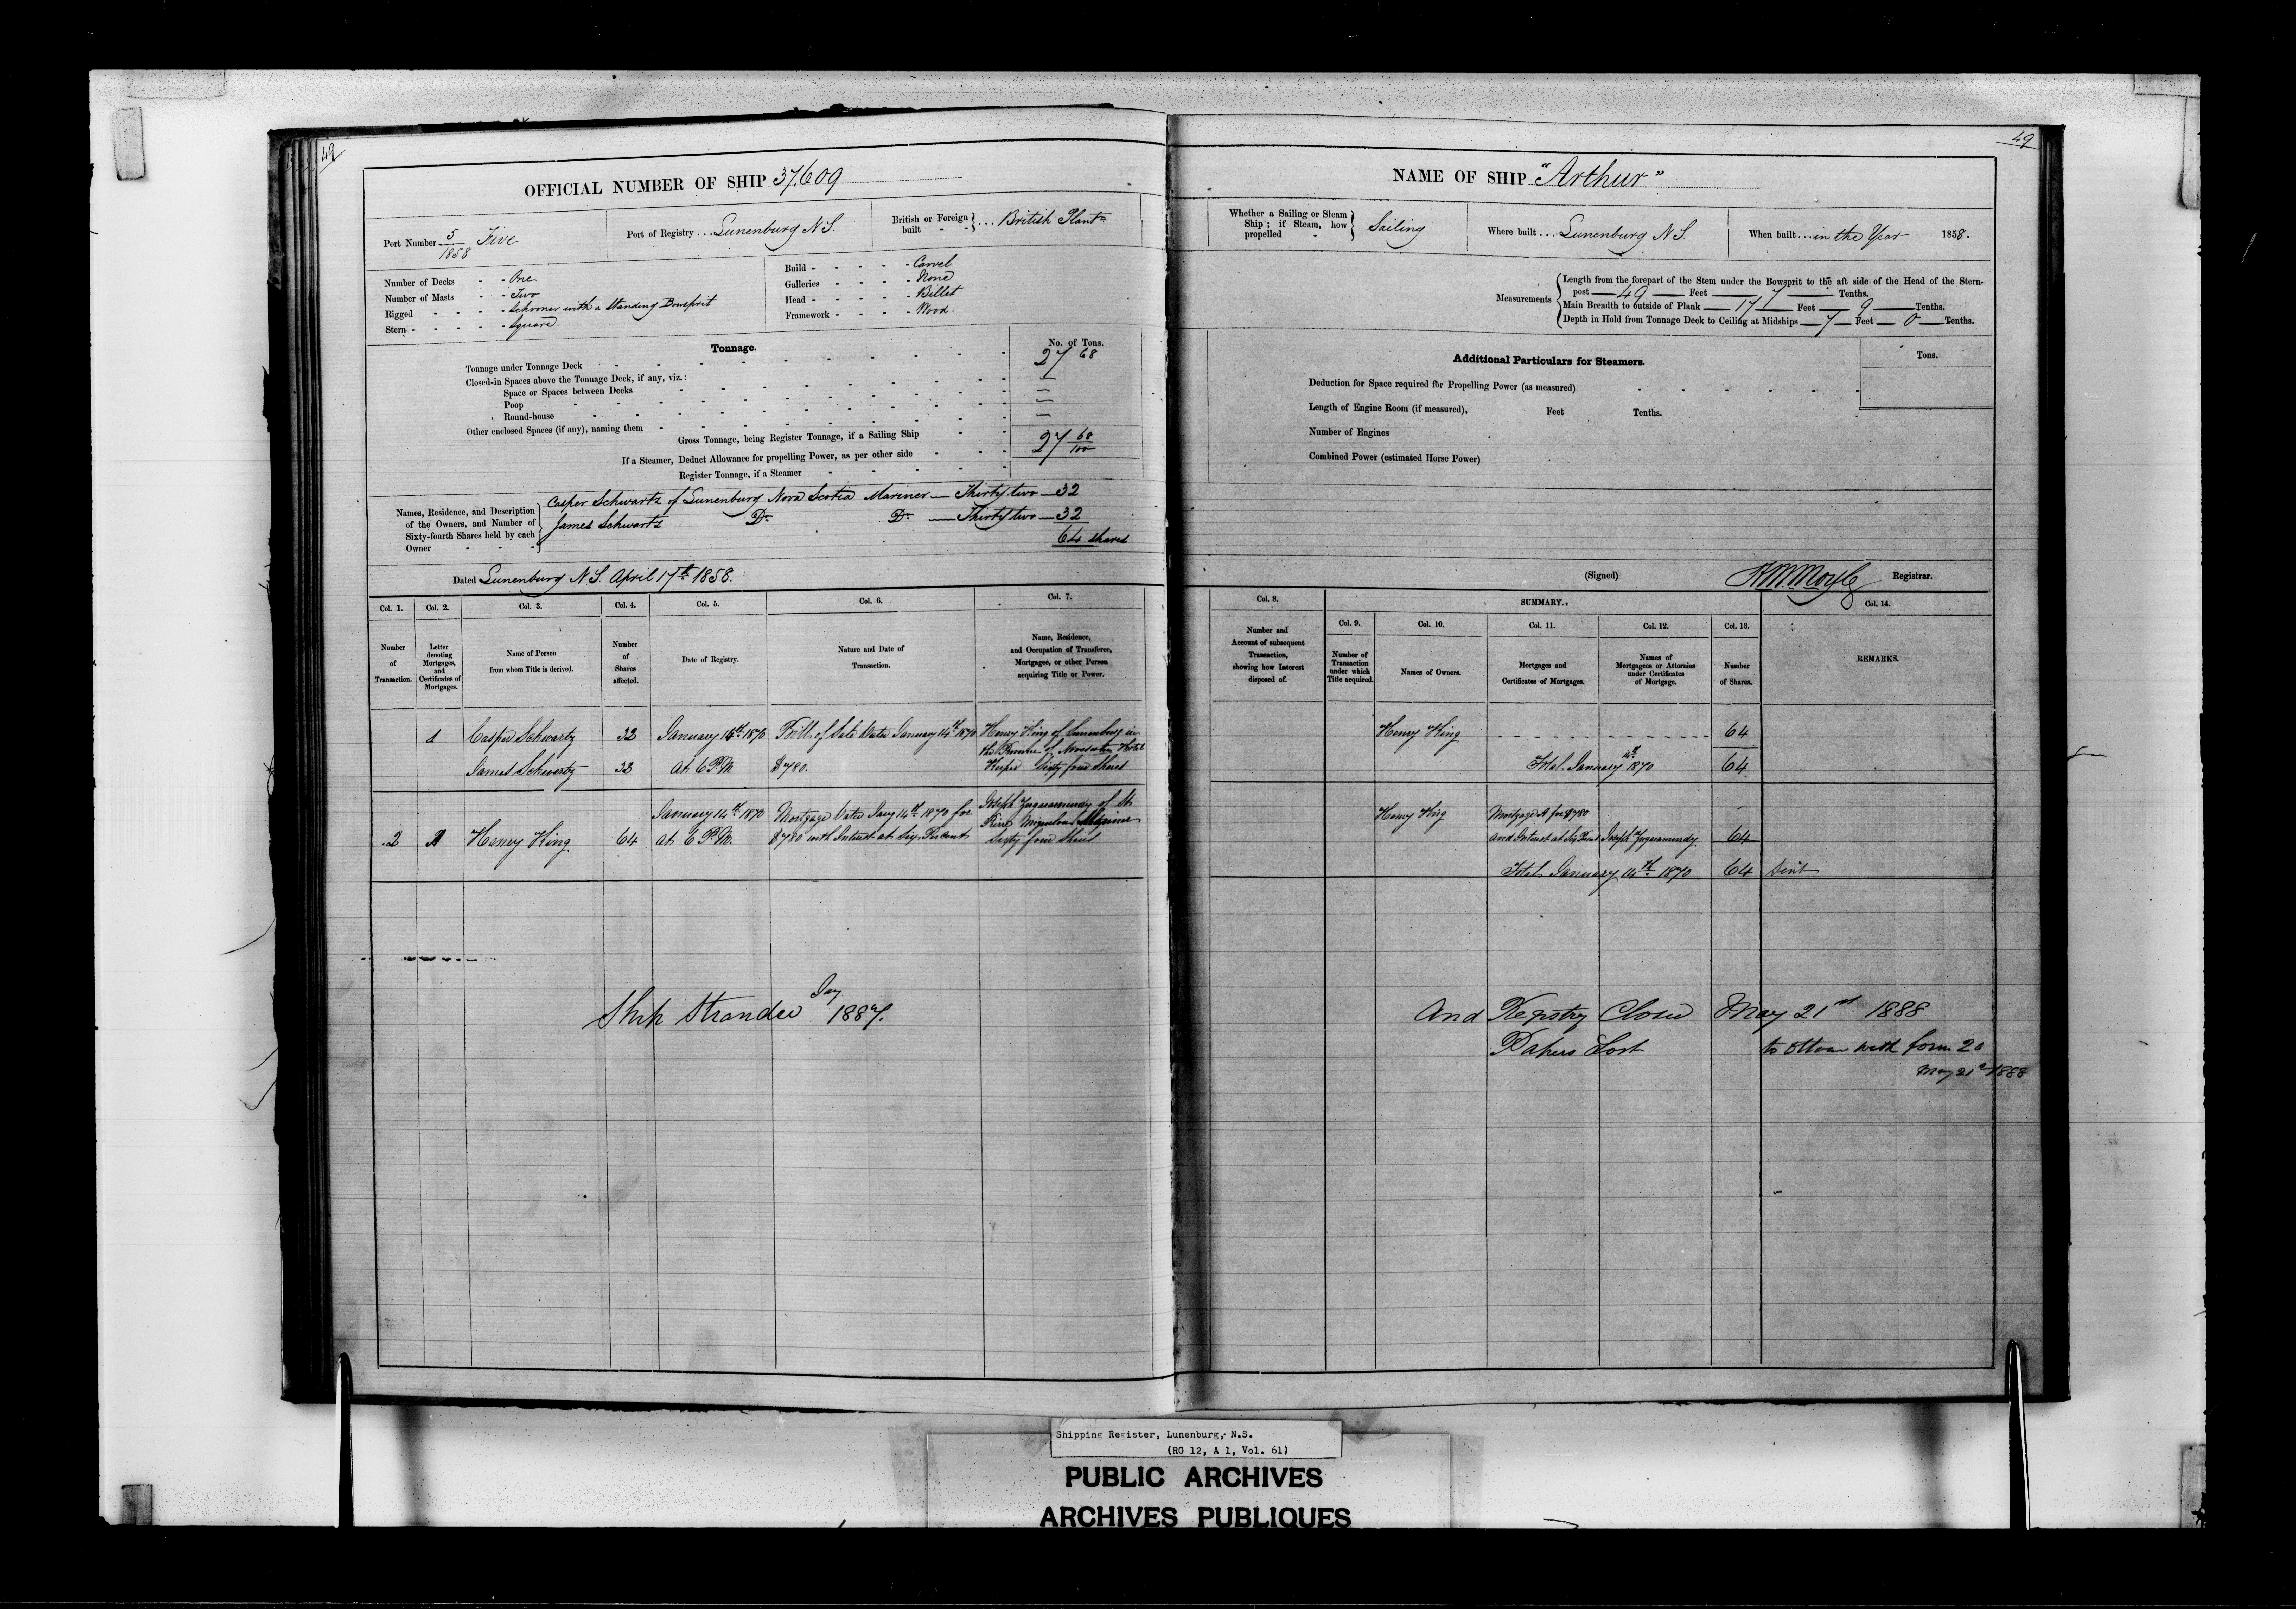 49
OFFICIAL NUMBER OF SHIP 37,609
Port Number 5/1858 Five
Port of Registry ... Lunenburg N.S.
British or Foreign built - - } ... British Plant^n
Number of Decks - - One
Number of Masts - - Two
Rigged - - - - Schooner with a Standing Bowsprit
Stern - - - - - Square
Build - - - - - Carvel
Galleries - - - - None
Head - - - - - Billet
Framework - - - - Wood.
Tonnage.
No. of Tons.
Tonnage under Tonnage Deck 27 68
Closed-in Spaces above the Tonnage Deck, if any, viz.:
Space or Spaces between Decks
Poop
Round-house
Other enclosed Spaces (if any), naming them
Gross Tonnage, being Register Tonnage, if a Sailing Ship 27 68/100
If a Steamer, Deduct Allowance for propelling Power, as per other side
Register Tonnage, if a Steamer
Names, Residence, and Description of the Owners, and Number of Sixty-fourth Shares held by each Owner
Casper Schwartz of Lunenburg Nova Scotia Mariner — Thirty two — 32
James Schwartz Do Do — Thirty two — 32
64 shares
Dated Lunenburg N.S. April 17th 1858.
Col. 1. Col. 2. Col. 3. Col. 4. Col. 5. Col. 6. Col. 7.
Number of Transaction.
Letter denoting Mortgages, and Certificates of Mortgages.
Name of Person from whom Title is derived.
Number of Shares affected.
Date of Registry.
Nature and Date of Transaction.
Name, Residence, and Occupation of Transferee, Mortgagee, or other Person acquiring Title or Power.
Casper Schwartz 32 January 14th 1870 Bill of Sale Dated January 14th 1870 Henry King of Lunenburg in
James Schwartz 32 At 6 P.M. $780. Sixty four Shares
January 14th 1870 Mortgage Dated Jany 14th 1870 for Joseph of St
2 A Henry King 64 at 6 P.M. $780 with Interest at Six Per Cent
Sixty four Shares
Ship Stranded Jay 1887.
49
NAME OF SHIP "Arthur"
Whether a Sailing or Steam Ship; if Steam, how propelled - } Sailing
Where built ... Lunenburg N.S.
When built ... in the Year 1858.
Measurements
Length from the forepart of the Stem under the Bowsprit to the aft side of the Head of the Stern-
post — 49 — Feet — 7 — Tenths.
Main Breadth to outside of Plank — 17 — Feet — 9 — Tenths.
Depth in Hold from Tonnage Deck to Ceiling at Midships — 7 — Feet — 0 — Tenths.
Additional Particulars for Steamers.
Tons.
Deduction for Space required for Propelling Power (as measured)
Length of Engine Room (if measured), Feet Tenths.
Number of Engines
Combined Power (estimated Horse Power)
(Signed) Registrar.
Col. 8. SUMMARY. Col. 14.
Col. 9. Col. 10. Col. 11. Col. 12. Col. 13.
Number and Account of subsequent Transaction, showing how Interest disposed of.
Number of Transaction under which Title acquired.
Names of Owners.
Mortgages and Certificates of Mortgages.
Names of Mortgagees or Attornies under Certificates of Mortgage.
Number of Shares.
REMARKS.
Henry King 64
Total January 14th 1870 64
Henry King Mortgage A for $780
and Interest at Six Per Cent Joseph 64
Total January 14th 1870 64 Sent
And Registry Closed May 21st 1888
Papers Lost to Ottawa with form 20
May 21st 1888
Shipping Register, Lunenburg, N.S.
(RG 12, A 1, Vol. 61)
PUBLIC ARCHIVES
ARCHIVES PUBLIQUES